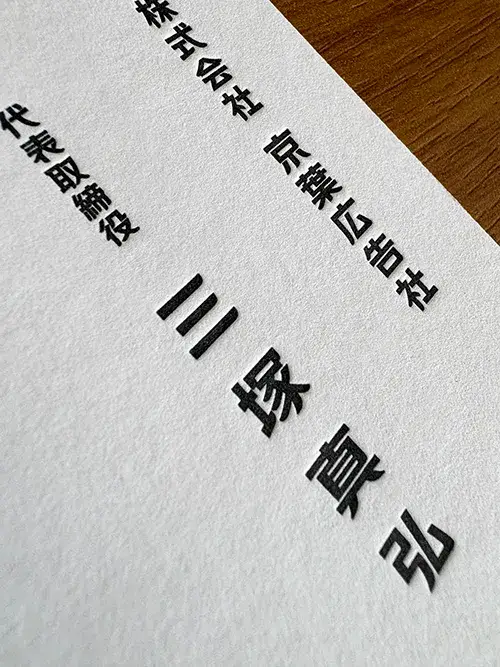 株式会社 京葉広告社
代表取締役
三塚真弘